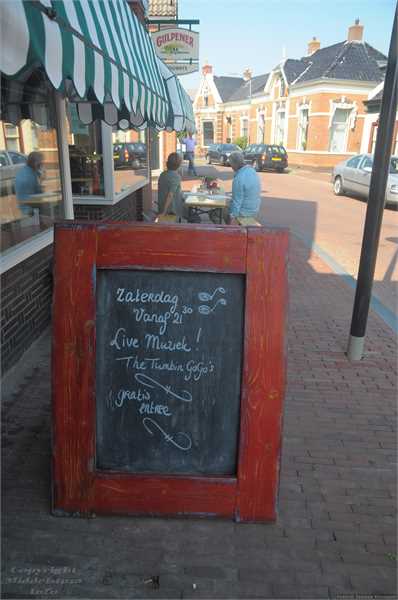 GULPENER
Zaterdag
Vanaf 21 30
Live Muziek!
The Tumbin GoGo's
gratis
entree